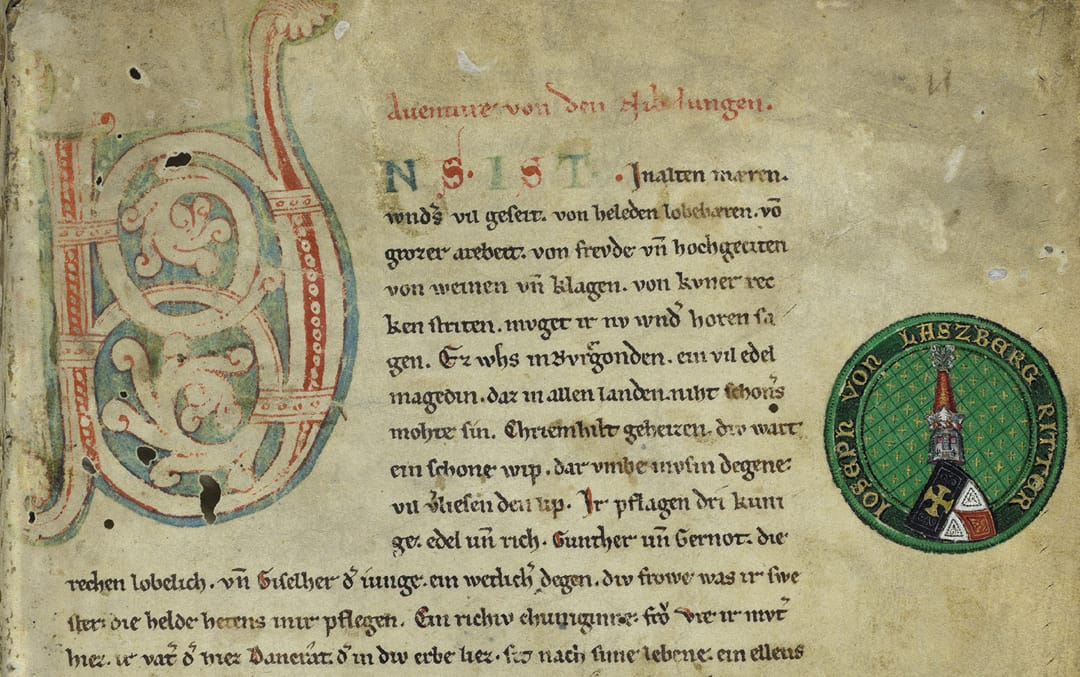 Auenture von den Nibelungen.
VNS IST. In alten mæren.
wnds vil geseit. von heleden lobebæren. võ
grozer arebeit. von frevde vn̄ hochgeciten
von weinen vn̄ klagen. von kvner rec
ken striten. mvget ir nv wnd̾ horen sa
gen. Ez whs in Bvrgonden. ein vil edel
magedin. daz in allen landen. niht schons
mohte sin. Chriemhilt geheizen. div wart
ein schone wip. dar vmbe mvsin degene
vil v̾liesen den lip. Ir pflagen dri kuni
ge. edel vn̄ rich. Gunther vn̄ Gernot. die
rechen lobelich. vn̄ Giselher d̾ iunge. ein wetlich̾ degen. div frowe was ir swe
ster. die helde hetens inir pflegen. Ein richiv chuniginne. fro̾ Vte ir mvt̾
hiez. ir vat̾ d̾ hiez Dancrat. d̾ in div erbe liez. sit nach sime lebene. ein ellens
JOSEPH VON LASZBERG RITTER